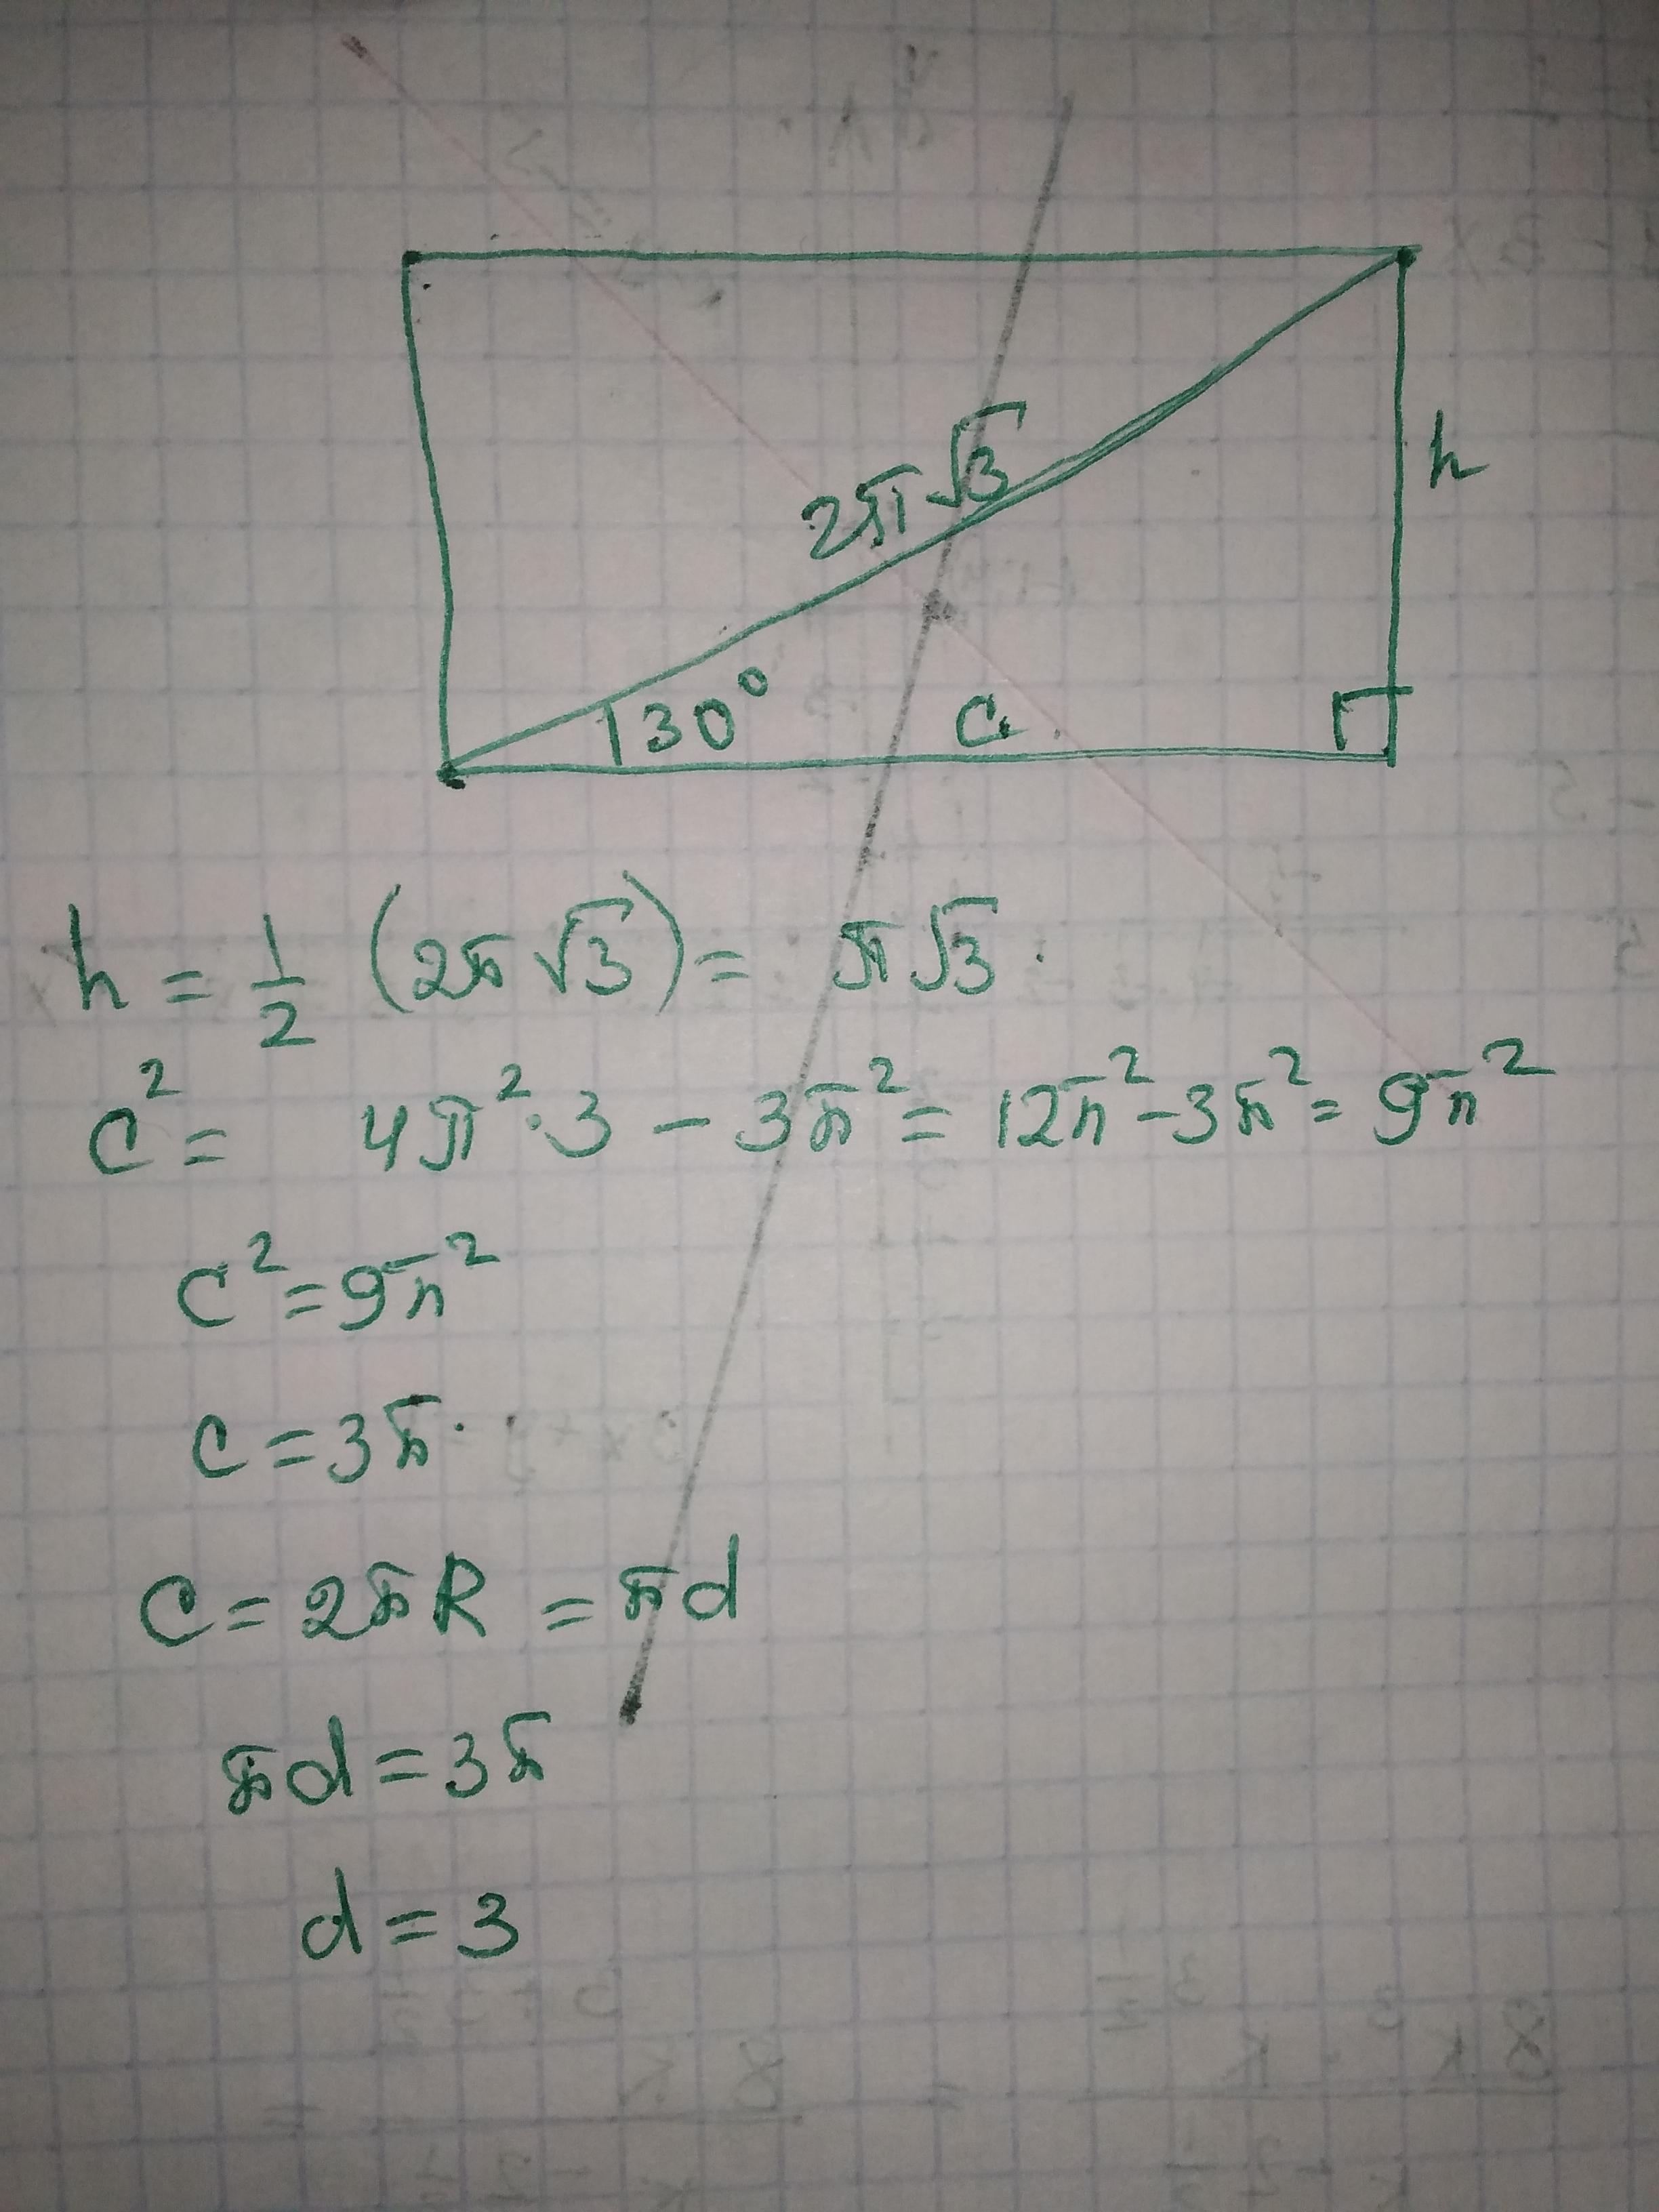 2π√3
h
30°
C
h = 1/2 (2π√3) = π√3.
C² = 4π²·3 - 3π² = 12π² - 3π² = 9π²
C² = 9π²
C = 3π.
C = 2πR = πd
πd = 3π
d = 3